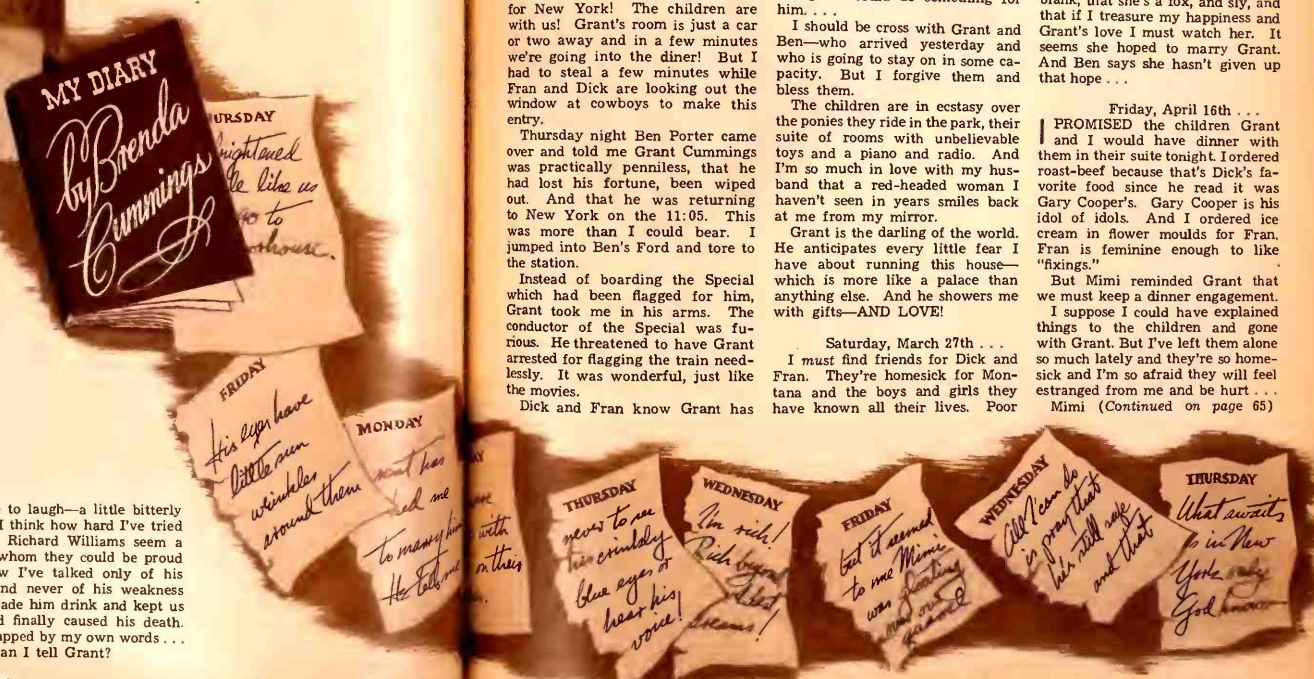 MY DIARY
by Brenda
Cummings
URSDAY
rightened
le like us
go to
orhouse.
FRIDAY
His eyes have
little sun
wrinkles
around them
MONDAY
has
me
to marry him
He tells me
to laugh—a little bitterly
I think how hard I've tried
Richard Williams seem a
whom they could be proud
w I've talked only of his
nd never of his weakness
ade him drink and kept us
d finally caused his death.
apped by my own words...
an I tell Grant?
for New York! The children are
with us! Grant's room is just a car
or two away and in a few minutes
we're going into the diner! But I
had to steal a few minutes while
Fran and Dick are looking out the
window at cowboys to make this
entry.
Thursday night Ben Porter came
over and told me Grant Cummings
was practically penniless, that he
had lost his fortune, been wiped
out. And that he was returning
to New York on the 11:05. This
was more than I could bear. I
jumped into Ben's Ford and tore to
the station.
Instead of boarding the Special
which had been flagged for him,
Grant took me in his arms. The
conductor of the Special was fu-
rious. He threatened to have Grant
arrested for flagging the train need-
lessly. It was wonderful, just like
the movies.
Dick and Fran know Grant has
him. . . .
I should be cross with Grant and
Ben—who arrived yesterday and
who is going to stay on in some ca-
pacity. But I forgive them and
bless them.
The children are in ecstasy over
the ponies they ride in the park, their
suite of rooms with unbelievable
toys and a piano and radio. And
I'm so much in love with my hus-
band that a red-headed woman I
haven't seen in years smiles back
at me from my mirror.
Grant is the darling of the world.
He anticipates every little fear I
have about running this house—
which is more like a palace than
anything else. And he showers me
with gifts—AND LOVE!
Saturday, March 27th . . .
I must find friends for Dick and
Fran. They're homesick for Mon-
tana and the boys and girls they
have known all their lives. Poor
blank, that she's a fox, and sly, and
that if I treasure my happiness and
Grant's love I must watch her. It
seems she hoped to marry Grant.
And Ben says she hasn't given up
that hope . . .
Friday, April 16th . . .
I PROMISED the children Grant
and I would have dinner with
them in their suite tonight. I ordered
roast-beef because that's Dick's fa-
vorite food since he read it was
Gary Cooper's. Gary Cooper is his
idol of idols. And I ordered ice
cream in flower moulds for Fran.
Fran is feminine enough to like
"fixings."
But Mimi reminded Grant that
we must keep a dinner engagement.
I suppose I could have explained
things to the children and gone
with Grant. But I've left them alone
so much lately and they're so home-
sick and I'm so afraid they will feel
estranged from me and be hurt . . .
Mimi (Continued on page 65)
AY
with
on their
THURSDAY
never to see
his crinkly
blue eyes or
hear his
voice!
WEDNESDAY
I'm rich!
Rich beyond
dreams!
FRIDAY
but it seemed
to me Mimi
was gloating
over our
quarrel
WEDNESDAY
All I can do
is pray that
he's still safe
and that
THURSDAY
What awaits
us in New
York only
God knows